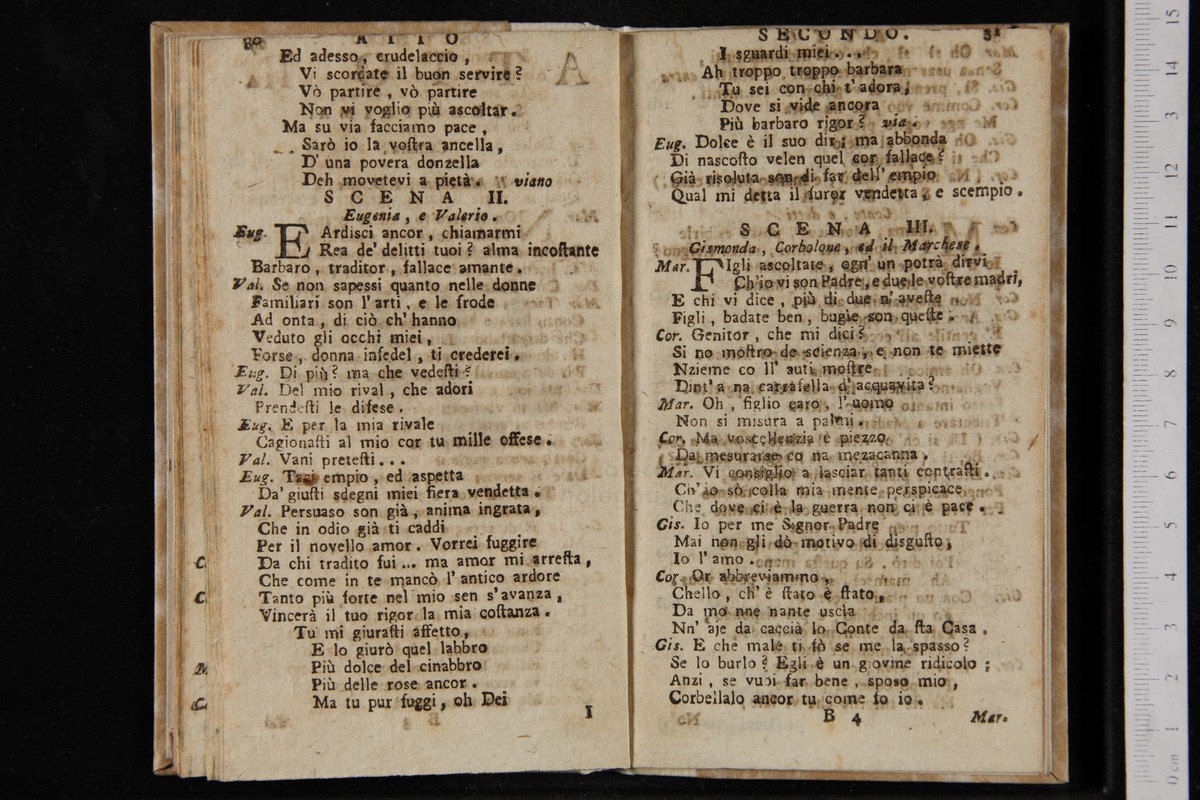 30 ATTO
Ed adesso, crudelaccio,
Vi scordate il buon servire?
Vò partire, vò partire
Non vi voglio più ascoltar.
Ma su via facciamo pace,
Sarò io la voſtra ancella,
D' una povera donzella
Deh movetevi a pietà. viano
SCENA II.
Eugenia, e Valerio.
Eug. E Ardisci ancor, chiamarmi
Rea de' delitti tuoi? alma incoſtante
Barbaro, traditor, fallace amante.
Val. Se non sapessi quanto nelle donne
Familiari son l' arti, e le frode
Ad onta, di ciò ch' hanno
Veduto gli occhi miei,
Forse, donna infedel, ti crederei.
Eug. Di più? ma che vedeſti?
Val. Del mio rival, che adori
Prendeſti le difese.
Eug. E per la mia rivale
Cagionaſti al mio cor tu mille offese.
Val. Vani preteſti...
Eug. Taci empio, ed aspetta
Da' giuſti sdegni miei fiera vendetta.
Val. Persuaso son già, anima ingrata,
Che in odio già ti caddi
Per il novello amor. Vorrei fuggire
Da chi tradito fui... ma amor mi arreſta,
Che come in te mancò l' antico ardore
Tanto più forte nel mio sen s' avanza,
Vincerà il tuo rigor la mia coſtanza.
Tu mi giuraſti affetto,
E lo giurò quel labbro
Più dolce del cinabbro
Più delle rose ancor.
Ma tu pur fuggi, oh Dei
I
SECONDO. 31
I sguardi miei...
Ah troppo troppo barbara
Tu sei con chi t' adora,
Dove si vide ancora
Più barbaro rigor? via.
Eug. Dolce è il suo dir; ma abbonda
Di nascoſto velen quel cor fallace?
Già risoluta son di far dell' empio
Qual mi detta il furor vendetta, e scempio.
SCENA III.
Gismonda, Corbolone, ed il Marchese.
Mar. FIgli ascoltate, ogn' un potrà dirvi
Ch' io vi son Padre, e due le voſtre madri,
E chi vi dice, più di due n' aveſte
Figli, badate ben, bugie son queſte.
Cor. Genitor, che mi dici?
Si no moſtro de scienza, e non te miette
Nzieme co ll' auti moſtre
Dint' a na carrafella d' acquavita?
Mar. Oh, figlio caro, l' uomo
Non si misura a palmi.
Cor. Ma voscellenzia è piezzo
Da mesurarse co na mezacanna.
Mar. Vi consiglio a lasciar tanti contraſti.
Ch' io sò colla mia mente perspicace
Che dove ci è la guerra non ci è pace.
Gis. Io per me Signor Padre
Mai non gli dò motivo di disguſto,
Io l' amo.
Cor. Or abbreviammo,
Chello, ch' è ſtato è ſtato,
Da mo nne nante uscìa
Nn' aje da caccià lo Conte da ſta Casa.
Gis. E che male ti fò se me la spasso?
Se lo burlo? Egli è un giovine ridicolo;
Anzi, se vuoi far bene, sposo mio,
Corbellalo ancor tu come fo io.
B 4 Mar.